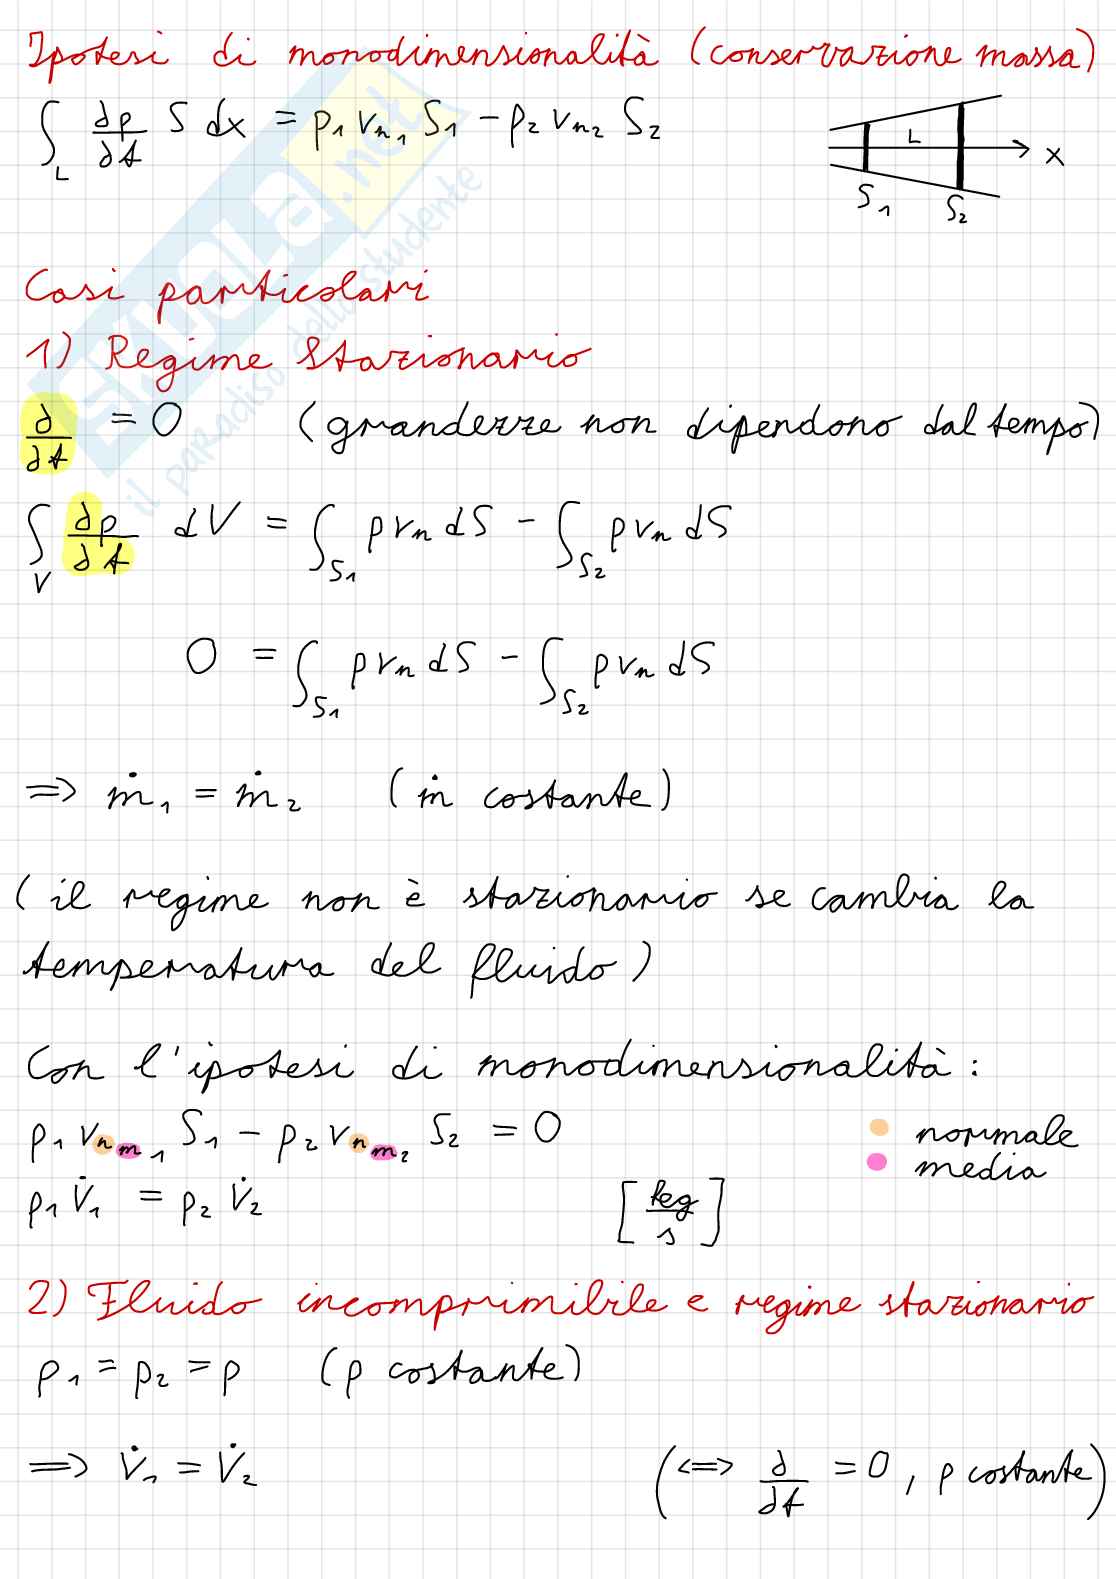 Ipotesi di monodimensionalità (conservazione massa)
∫_L ∂ρ/∂t S dx = ρ₁ v_n₁ S₁ - ρ₂ v_n₂ S₂
L
x
S₁ S₂
Casi particolari
1) Regime Stazionario
∂/∂t = 0 (grandezze non dipendono dal tempo)
∫_V ∂ρ/∂t dV = ∫_S₁ ρ v_n dS - ∫_S₂ ρ v_n dS
0 = ∫_S₁ ρ v_n dS - ∫_S₂ ρ v_n dS
=> ṁ₁ = ṁ₂ (ṁ costante)
(il regime non è stazionario se cambia la
temperatura del fluido)
Con l'ipotesi di monodimensionalità:
ρ₁ v_n_m₁ S₁ - ρ₂ v_n_m₂ S₂ = 0
normale
media
ρ₁ V̇₁ = ρ₂ V̇₂ [kg/s]
2) Fluido incomprimibile e regime stazionario
ρ₁ = ρ₂ = ρ (ρ costante)
=> V̇₁ = V̇₂ (<=> ∂/∂t = 0, ρ costante)
skuola.net
il paradiso dello studente